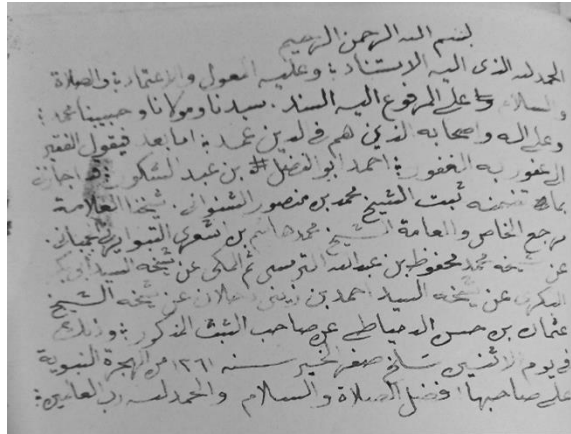 بسم الله الرحمن الرحيم
الحمد لله الذى اليه الاستناد ؛ وعليه المعول والاعتماد ؛ والصلاة
والسلام على المرفوع اليه السند . سيدنا ومولانا وحبيبنا محمد ؛
وعلى اله واصحابه الذين هم فى الدين عمد ؛ اما بعد فيقول الفقير
الى عفو ربه الغفور ؛ احمد ابو الفضل بن عبد الشكور ؛ قد اجازنى
بما تضمنه ثبت الشيخ محمد بن منصور الشنوانى . شيخنا العلامة
مرجع الخاص والعامة الشيخ محمد هاشم بن اشعرى التبوايرنج جمبانى
عن شيخه محمد محفوظ بن عبد الله الترمسى ثم المكى عن شيخه السيد أبى بكر
عن شيخه السيد احمد بن زينى دحلان عن شيخه الشيخ
عثمان بن حسن الدمياطى عن صاحب الثبت المذكور ؛ وذلك
فى يوم الاثنين صفر الخير سنه ١٢٦١ من الهجرة النبوية
على صاحبها افضل الصلاة والسلام والحمد لله رب العالمين ؛